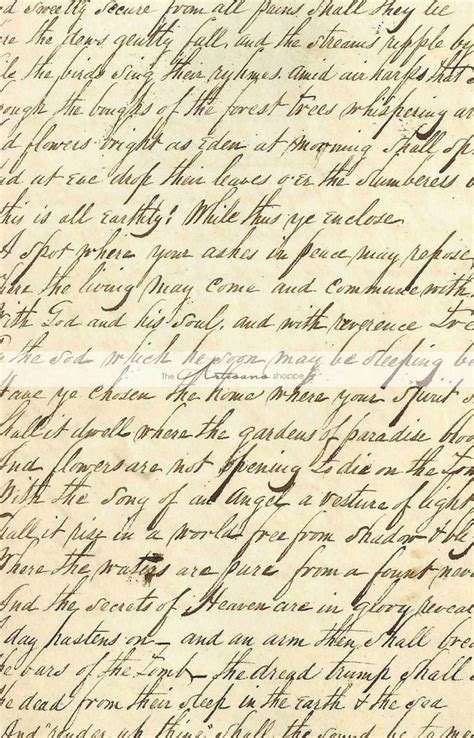 d sweetly secure from all pains shall they lie
re the dews gently fall, and the streams ripple by
le the birds sing their rythmes, amid air harps that
rough the boughs of the forest trees whispering ar
d flowers bright as Eden at morning shall sp
nd at Eve drop their leaves o'er the slumberers
this is all Earthly! While thus ye enclose
A spot where your ashes in peace may repose
here the living may come and commune with
With God and his Soul, and with reverence
the sod which he soon may be sleeping be
The Artisans shoppe
Have ye chosen the home where your Spirit s
Shall it dwell where the gardens of paradise bloo
And flowers are not opening to die on the Tom
With the song of an Angel a vesture of light
Shall it rise in a world free from Shadow &
Where the waters are pure from a fount neve
And the secrets of Heaven are in glory revea
day hastens on - and an arm then shall brea
he bars of the Tomb - the dread trump shall
he dead from their sleep in the Earth & the Sea
And "render up thine" Shall the Sound be to